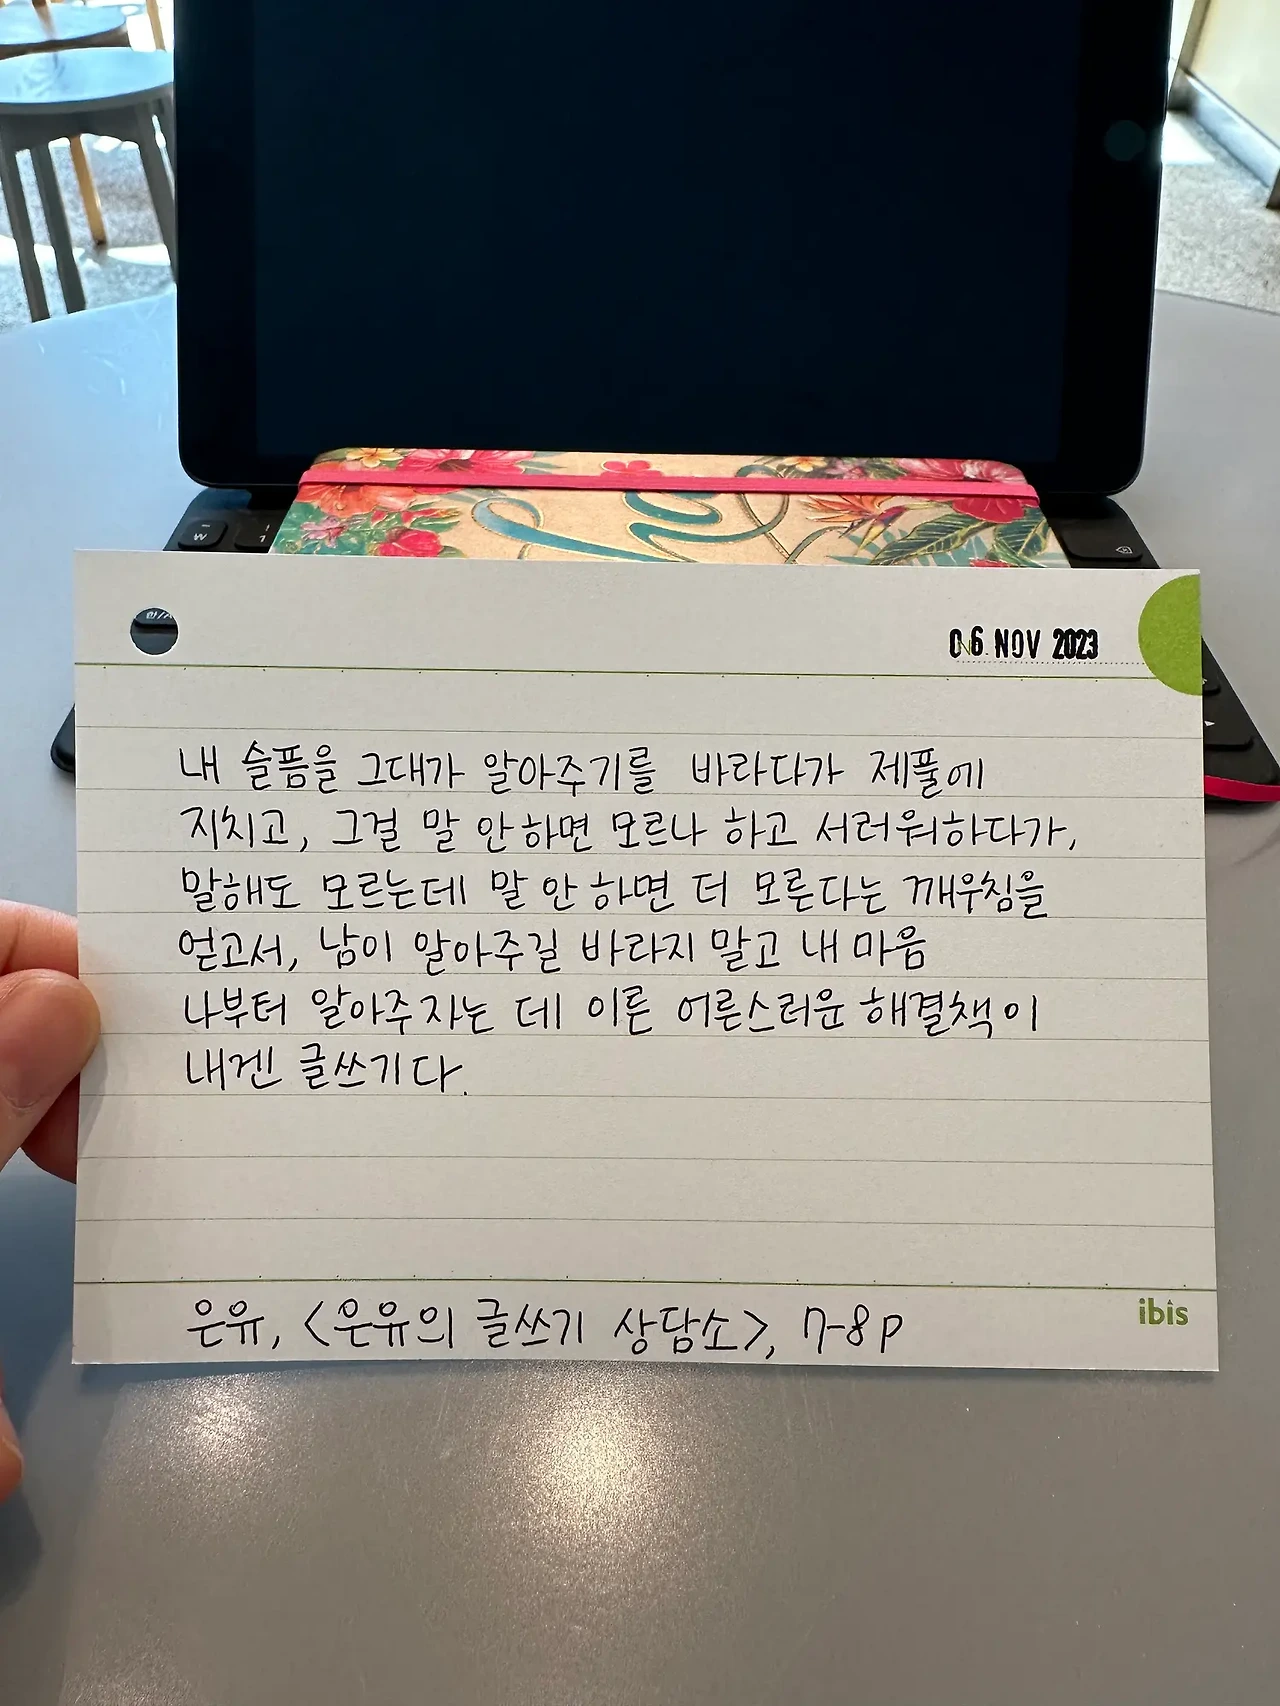 06 NOV 2023
내 슬픔을 그대가 알아주기를 바라다가 제풀에
지치고, 그걸 말 안하면 모르나 하고 서러워하다가,
말해도 모르는데 말 안 하면 더 모른다는 깨우침을
얻고서, 남이 알아주길 바라지 말고 내 마음
나부터 알아주자는 데 이른 어른스러운 해결책이
내겐 글쓰기다.
은유, <은유의 글쓰기 상담소>, 7-8p
ibis